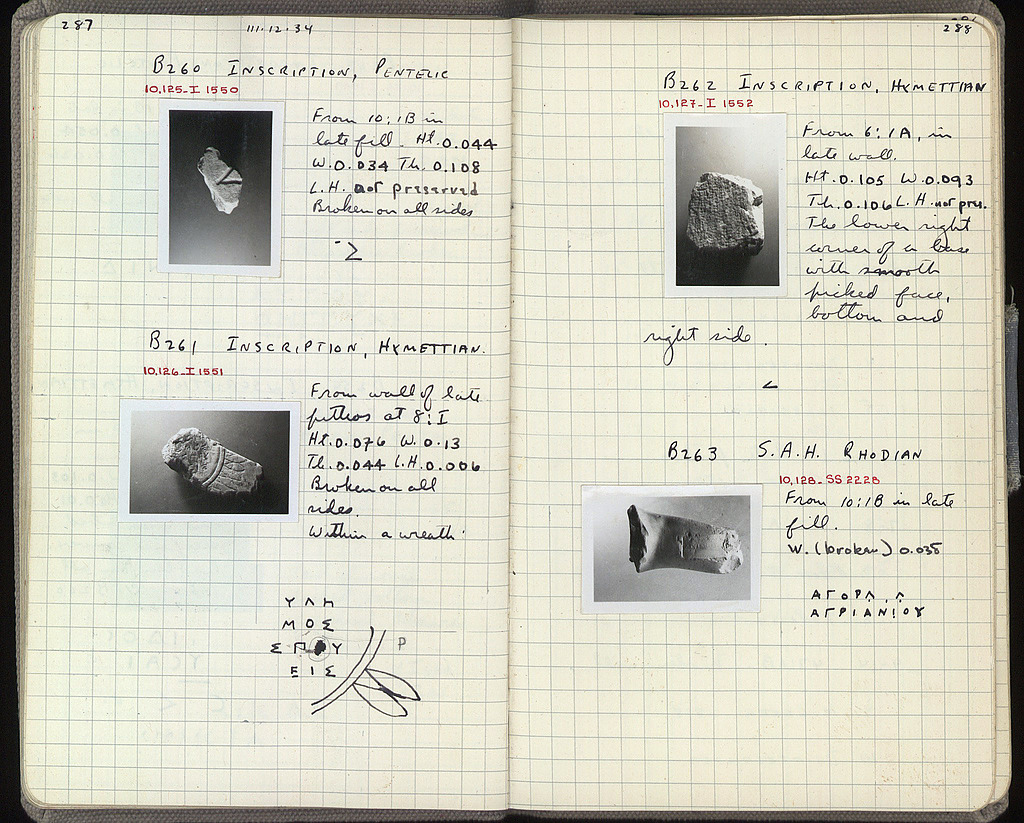 287
III·12·34
B260 INSCRIPTION, PENTELIC
10,125-I 1550
From 10:IB in
late fill. Ht. 0.044
W. 0.034 Th. 0.108
L.H. not preserved
Broken on all sides
Σ
B261 INSCRIPTION, HYMETTIAN.
10,126-I 1551
From wall of late
pithos at 8:I
Ht. 0.076 W. 0.13
Th. 0.044 L.H. 0.006
Broken on all
sides.
Within a wreath:
ΜΟΣ
ΕΙΣ
P
288
B262 INSCRIPTION, HYMETTIAN
10,127-I 1552
From 6:IA, in
late wall.
Ht. 0.105 W. 0.093
Th. 0.106 L.H. not pres.
The lower right
corner of a base
with smooth
picked face,
bottom and
right side.
B263 S.A.H. RHODIAN
10,128-SS 2228
From 10:IB in late
fill.
W. (broken) 0.035
ΑΓΡΙΑΝΙΟΥ